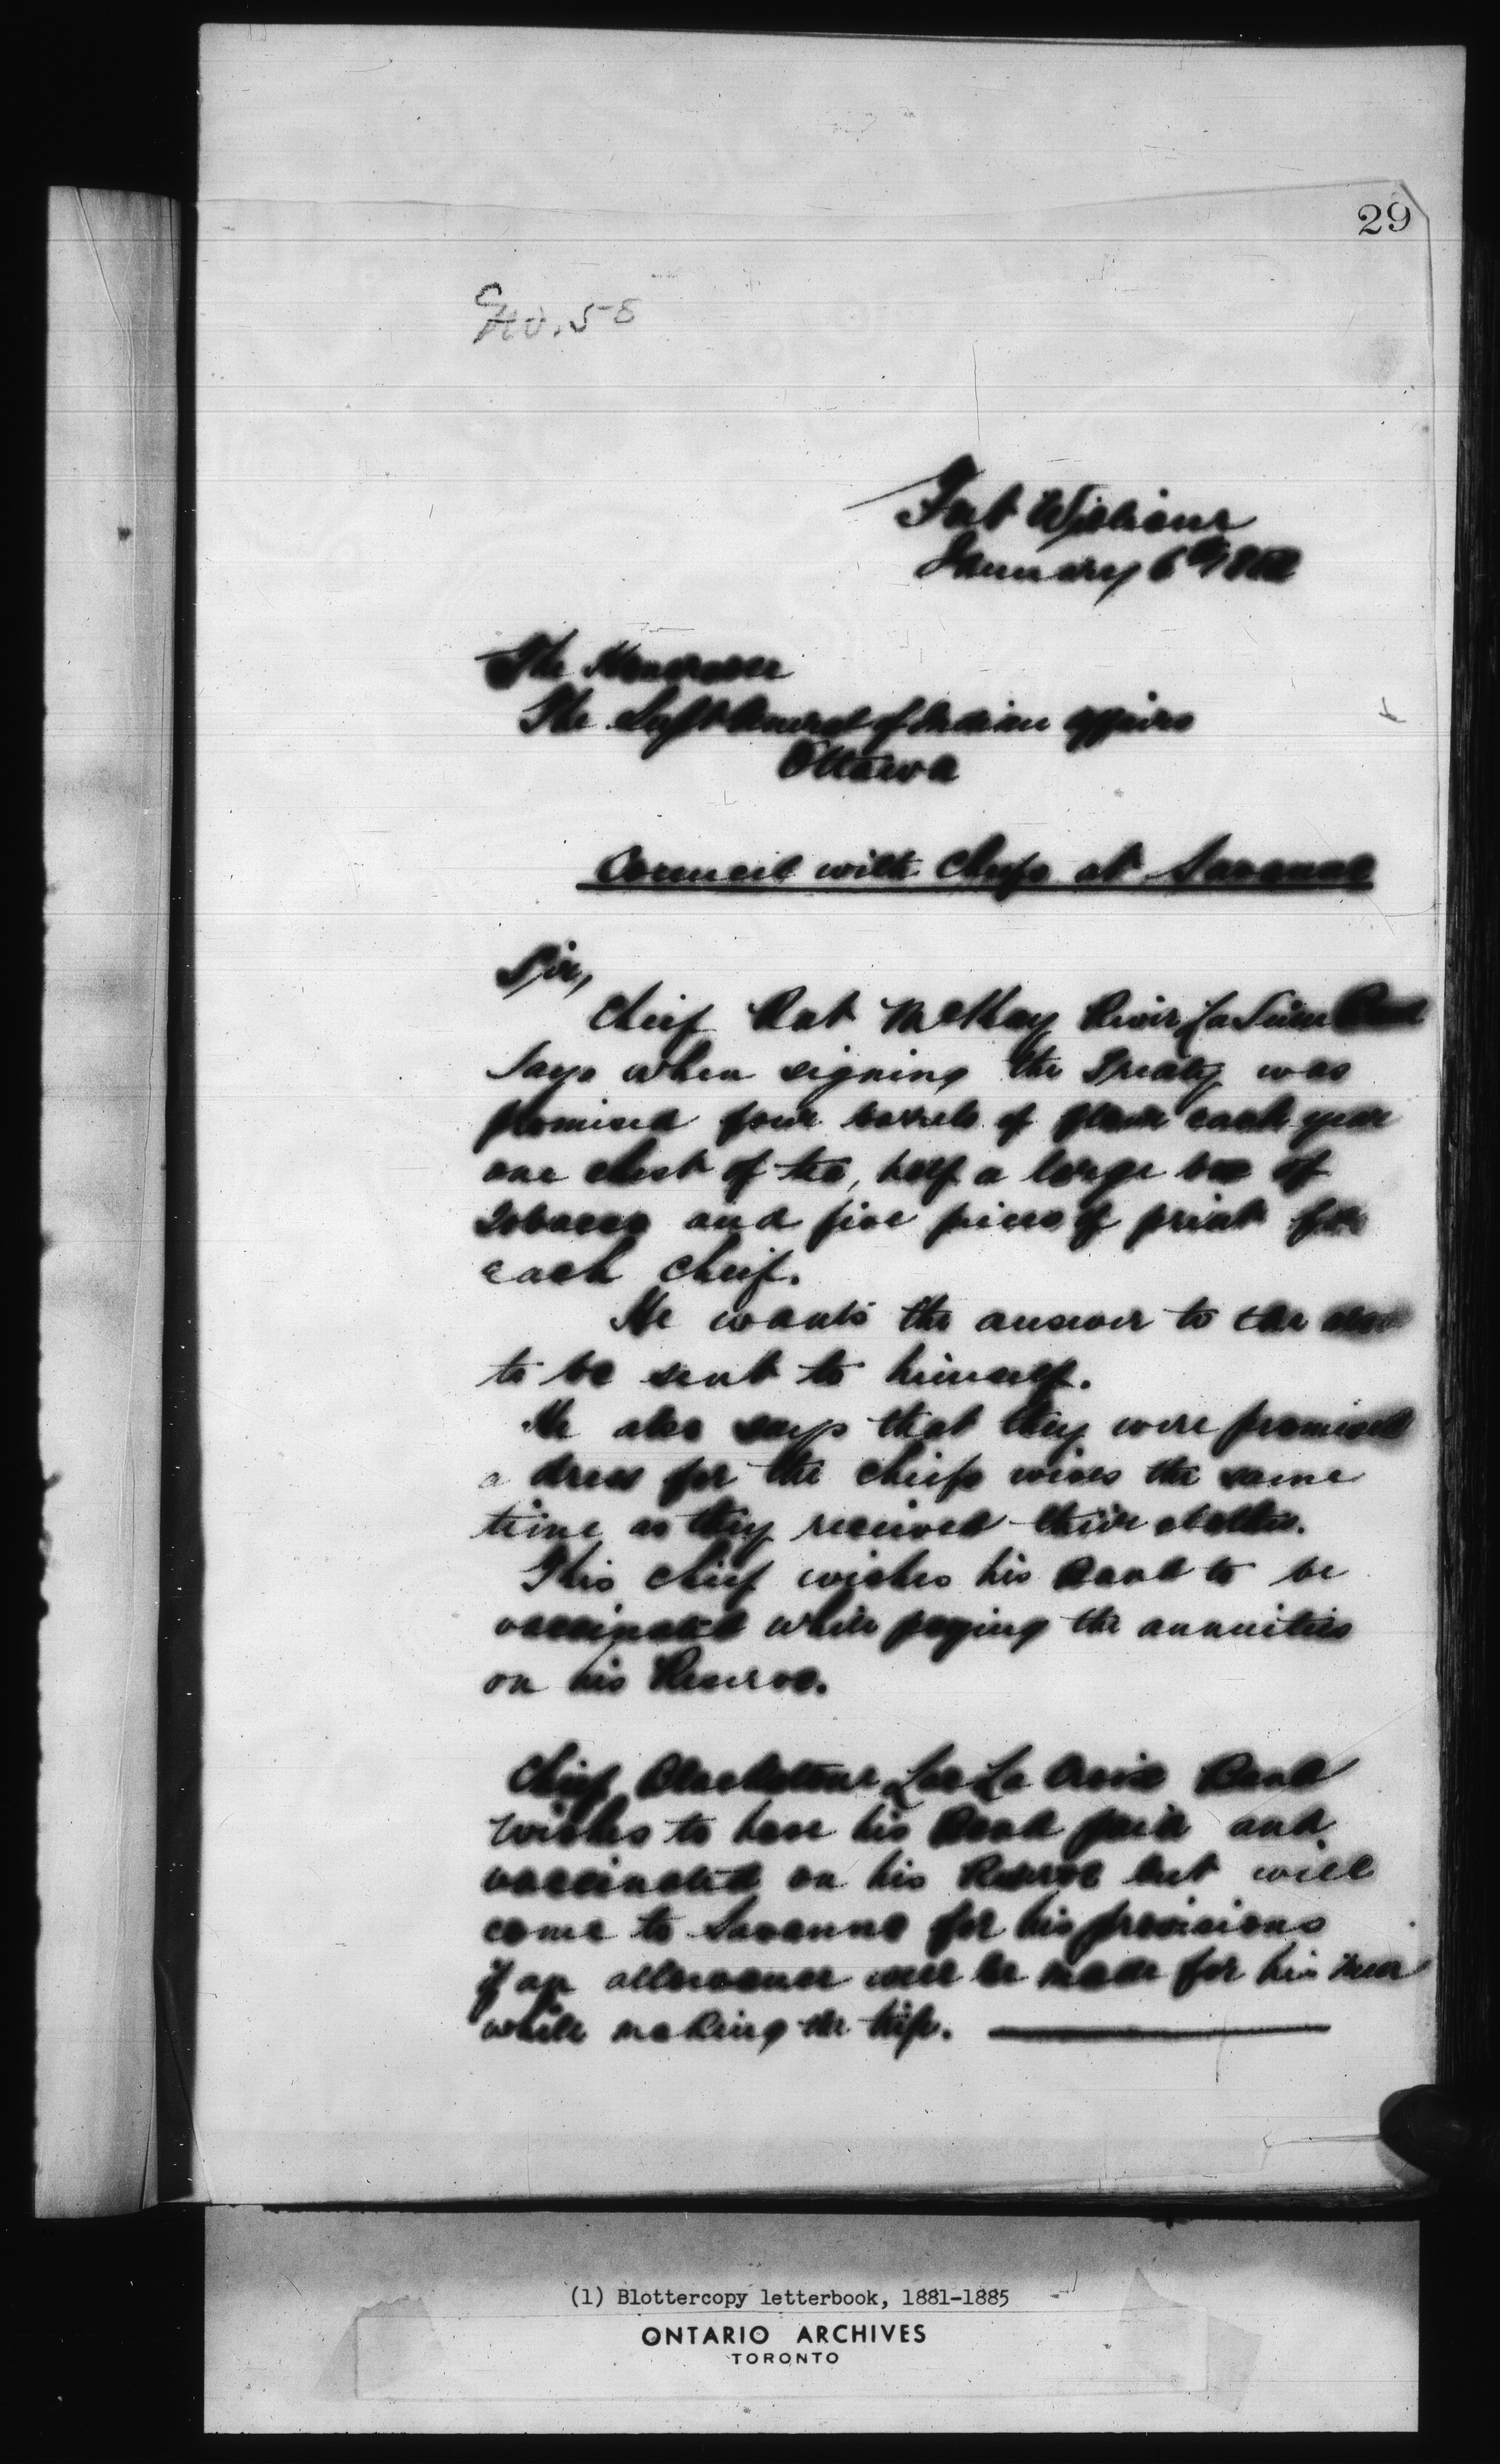 29
No. 58
Fort William
January 6th 1882
The Honorable
The Supt General of Indian affairs
Ottawa
Council with Chiefs at Savanne
Sir,
Chief Rat McKay River La Seine Band
Says when signing the Treaty was
promised four barrels of flour each year
one chest of tea, half a large box of
Tobacco and five pieces of print for
each Cheif.
He wants the answer to the
to be sent to himself.
He also says that they were promised
a dress for the Chiefs wives the same
time as they received their clothes.
This Chief wishes his Band to be
vaccinated while paying the annuities
on his Reserve.
Chief Blackstone Lac La Croix Band
wishes to have his Band paid and
vaccinated on his Reserve but will
come to Savanne for his provisions
if an allowance will be made for his men
while making the trip.
(1) Blottercopy letterbook, 1881-1885
ONTARIO ARCHIVES
TORONTO